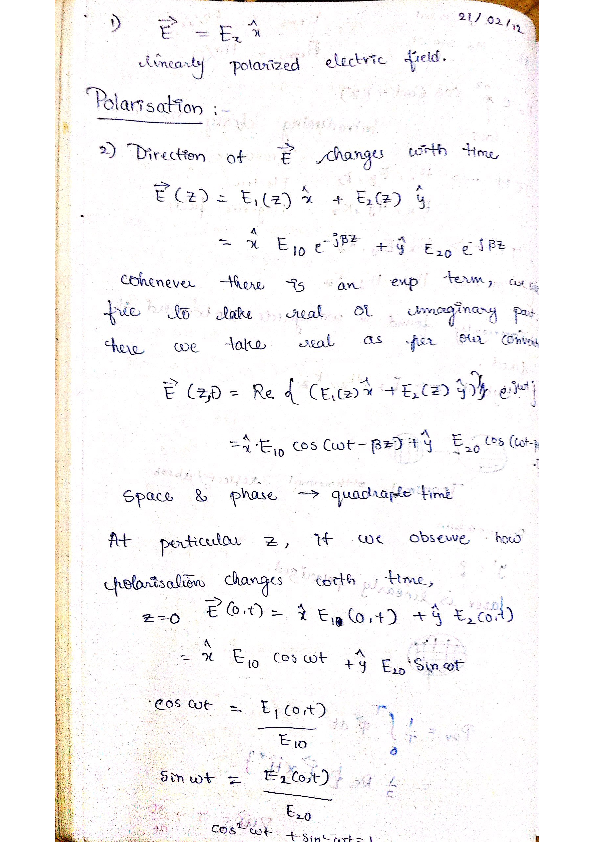 21/02/12
1) E⃗ = Eₓ x̂
linearly polarized electric field.
Polarisation :-
2) Direction of E⃗ changes with time
E⃗(z) = E₁(z) x̂ + E₂(z) ŷ
= x̂ E₁₀ e^-jβz + ŷ E₂₀ e^-jβz
whenever there is an exp term, we
free to take real or imaginary
here we take real as per our
E⃗(z,t) = Re { (E₁(z) x̂ + E₂(z) ŷ) e^jωt }
= x̂ E₁₀ cos (ωt - βz) + ŷ E₂₀ cos (ωt-
Space & phase → quadraple time
At perticular z, if we observe how
polarisation changes with time,
z=0 E⃗(0,t) = x̂ E₁(0,t) + ŷ E₂(0,t)
= x̂ E₁₀ cos ωt + ŷ E₂₀ sin ωt
cos ωt = E₁(0,t)
E₁₀
sin ωt = E₂(0,t)
E₂₀
cos²ωt + sin²ωt = 1